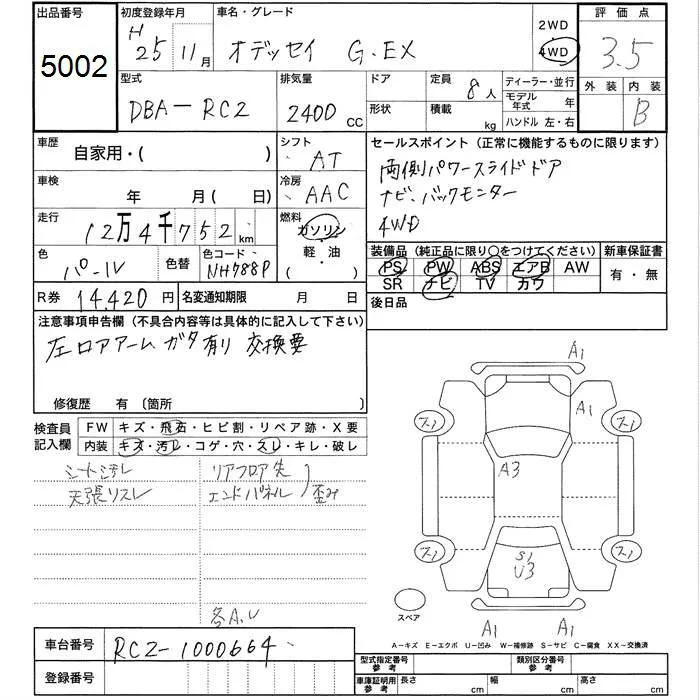 出品番号
5002
初度登録年月
H 25 11月
車名・グレード
オデッセイ G.EX
2WD
4WD
評価点
3.5
型式
DBA-RC2
排気量
2400 CC
ドア
形状
定員
8人
積載
kg
ディーラー・並行
モデル年式 年
ハンドル 左・右
外装 内装
B
車歴
自家用・( )
シフト
AT
セールスポイント(正常に機能するものに限ります)
両側パワースライドドア
ナビ、バックモニター
4WD
車検
年 月( 日)
冷房
AAC
走行
12万4千752 km
燃料
ガソリン
軽・油
( ・ )
色
パール
色替
色コード
NH788P
装備品(純正品に限り○をつけてください)
PS PW ABS エアB AW
SR ナビ TV カワ
新車保証書
有・無
R券 14,420 円
名変通知期限 月 日
後日品
注意事項申告欄(不具合内容等は具体的に記入して下さい)
左ロアアーム ガタ有り 交換要
修復歴 有〔箇所 〕
検査員記入欄
FW キズ・飛石・ヒビ割・リペア跡・X要
内装 キズ・汚レ・コゲ・穴・スレ・キレ・破レ
シート汚レ
天張リスレ
リアフロア先
エンドパネル
歪み
各A.U
A1
A1
A3
S1
U3
A1 A1
スペア
A-キズ E-エクボ U-凹み W-補修跡 S-サビ C-腐食 XX-交換済
車台番号
RC2-1000664
登録番号
型式指定番号参考
類別区分番号参考
車庫証明用参考
長さ cm
幅 cm
高さ cm